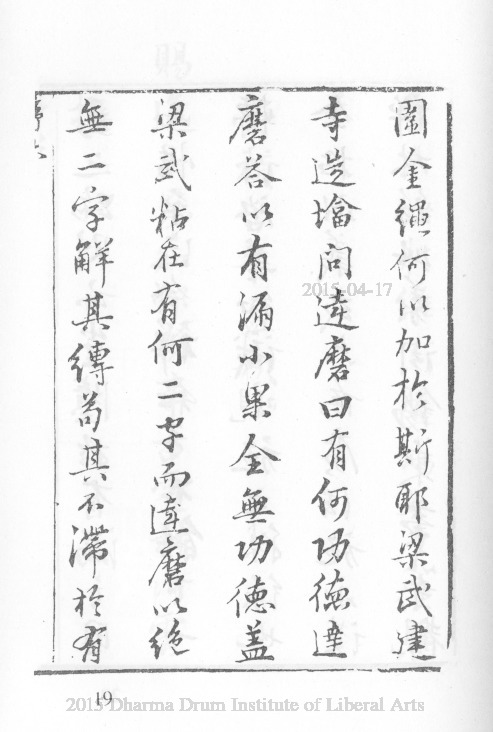 園金繩何以加於斯耶梁武建
寺造墖問達磨曰有何功德達
磨答以有漏小果全無功德蓋
梁武粘在有何二字而達磨以絶
無二字解其縛苟其不滯於有
2015-04-17
19
2015 Dharma Drum Institute of Liberal Arts